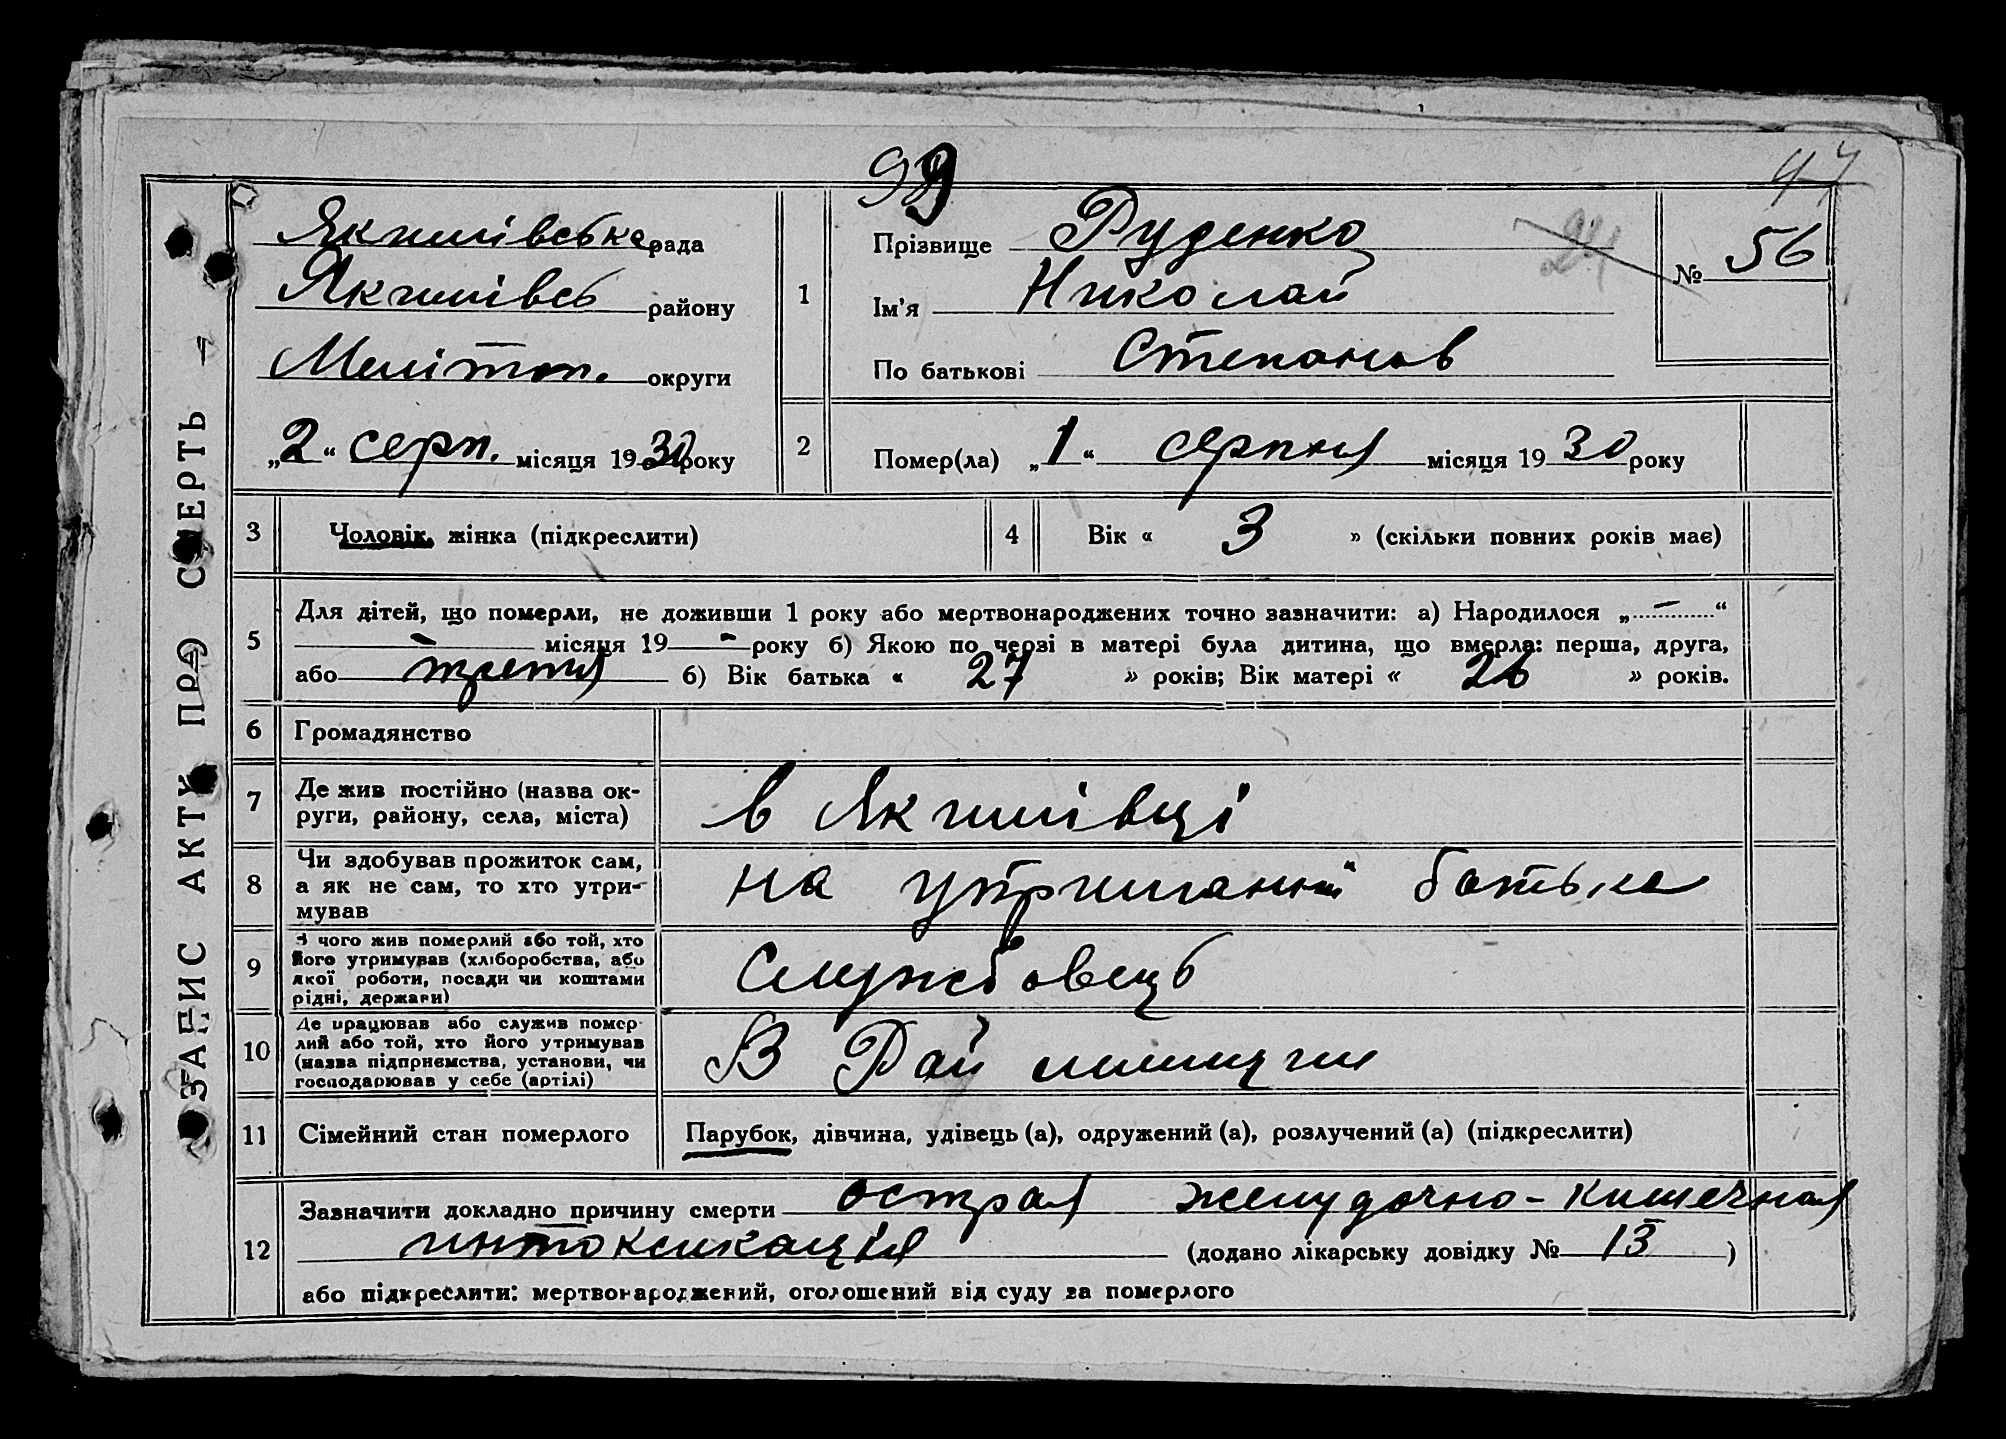 99
47
ЗАПИС АКТУ ПРО СМЕРТЬ —
Якимівська рада
Якимівсь району
Меліtоп. округи
„2“ серп. місяця 1930 року
1
Прізвище Руденко
Ім'я Николай
По батькові Степанов
24
№ 56
2
Помер(ла) „1“ серпня місяця 1930 року
3
Чоловік, жінка (підкреслити)
4
Вік « 3 » (скільки повних років має)
5
Для дітей, що померли, не доживши 1 року або мертвонароджених точно зазначити: а) Народилося „ — “
— місяця 19 - року б) Якою по черзі в матері була дитина, що вмерла: перша, друга,
або третя б) Вік батька « 27 » років; Вік матері « 26 » років.
6
Громадянство
7
Де жив постійно (назва ок-
руги, району, села, міста)
в Якимівці
8
Чи здобував прожиток сам,
а як не сам, то хто утри-
мував
на утриманні батька
9
З чого жив померлий або той, хто
його утримував (хліборобства, або
якої роботи, посади чи коштами
рідні, держави)
Службовець
10
Де працював або служив помер-
лий або той, хто його утримував
(назва підприємства, установи, чи
господарював у себе (артілі)
В Рай
11
Сімейний стан померлого
Парубок, дівчина, удівець (а), одружений (а), розлучений (а) (підкреслити)
12
Зазначити докладно причину смерти острая желудочно-кишечная
интоксикація (додано лікарську довідку № 13 )
або підкреслити: мертвонароджений, оголошений від суду за померлого